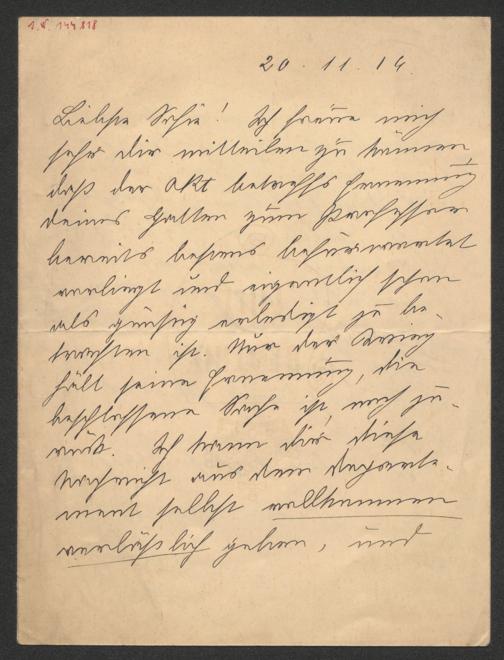 I.N. 144.818
20. 11. 14.
Liebste Sofie! Ich freue mich
sehr dir mitteilen zu können
daß der Akt betreffs Ernennung
deines Gatten zum Professor
bereits bestens befürwortet
vorliegt und eigentlich schon
als günstig erledigt zu be-
trachten ist. Nur der Krieg
hält seine Ernennung, die
beschlossene Sache ist, noch zu-
rück. Ich kann dir diese
Nachricht aus dem Departe-
ment selbst vollkommen
verläßlich geben, und